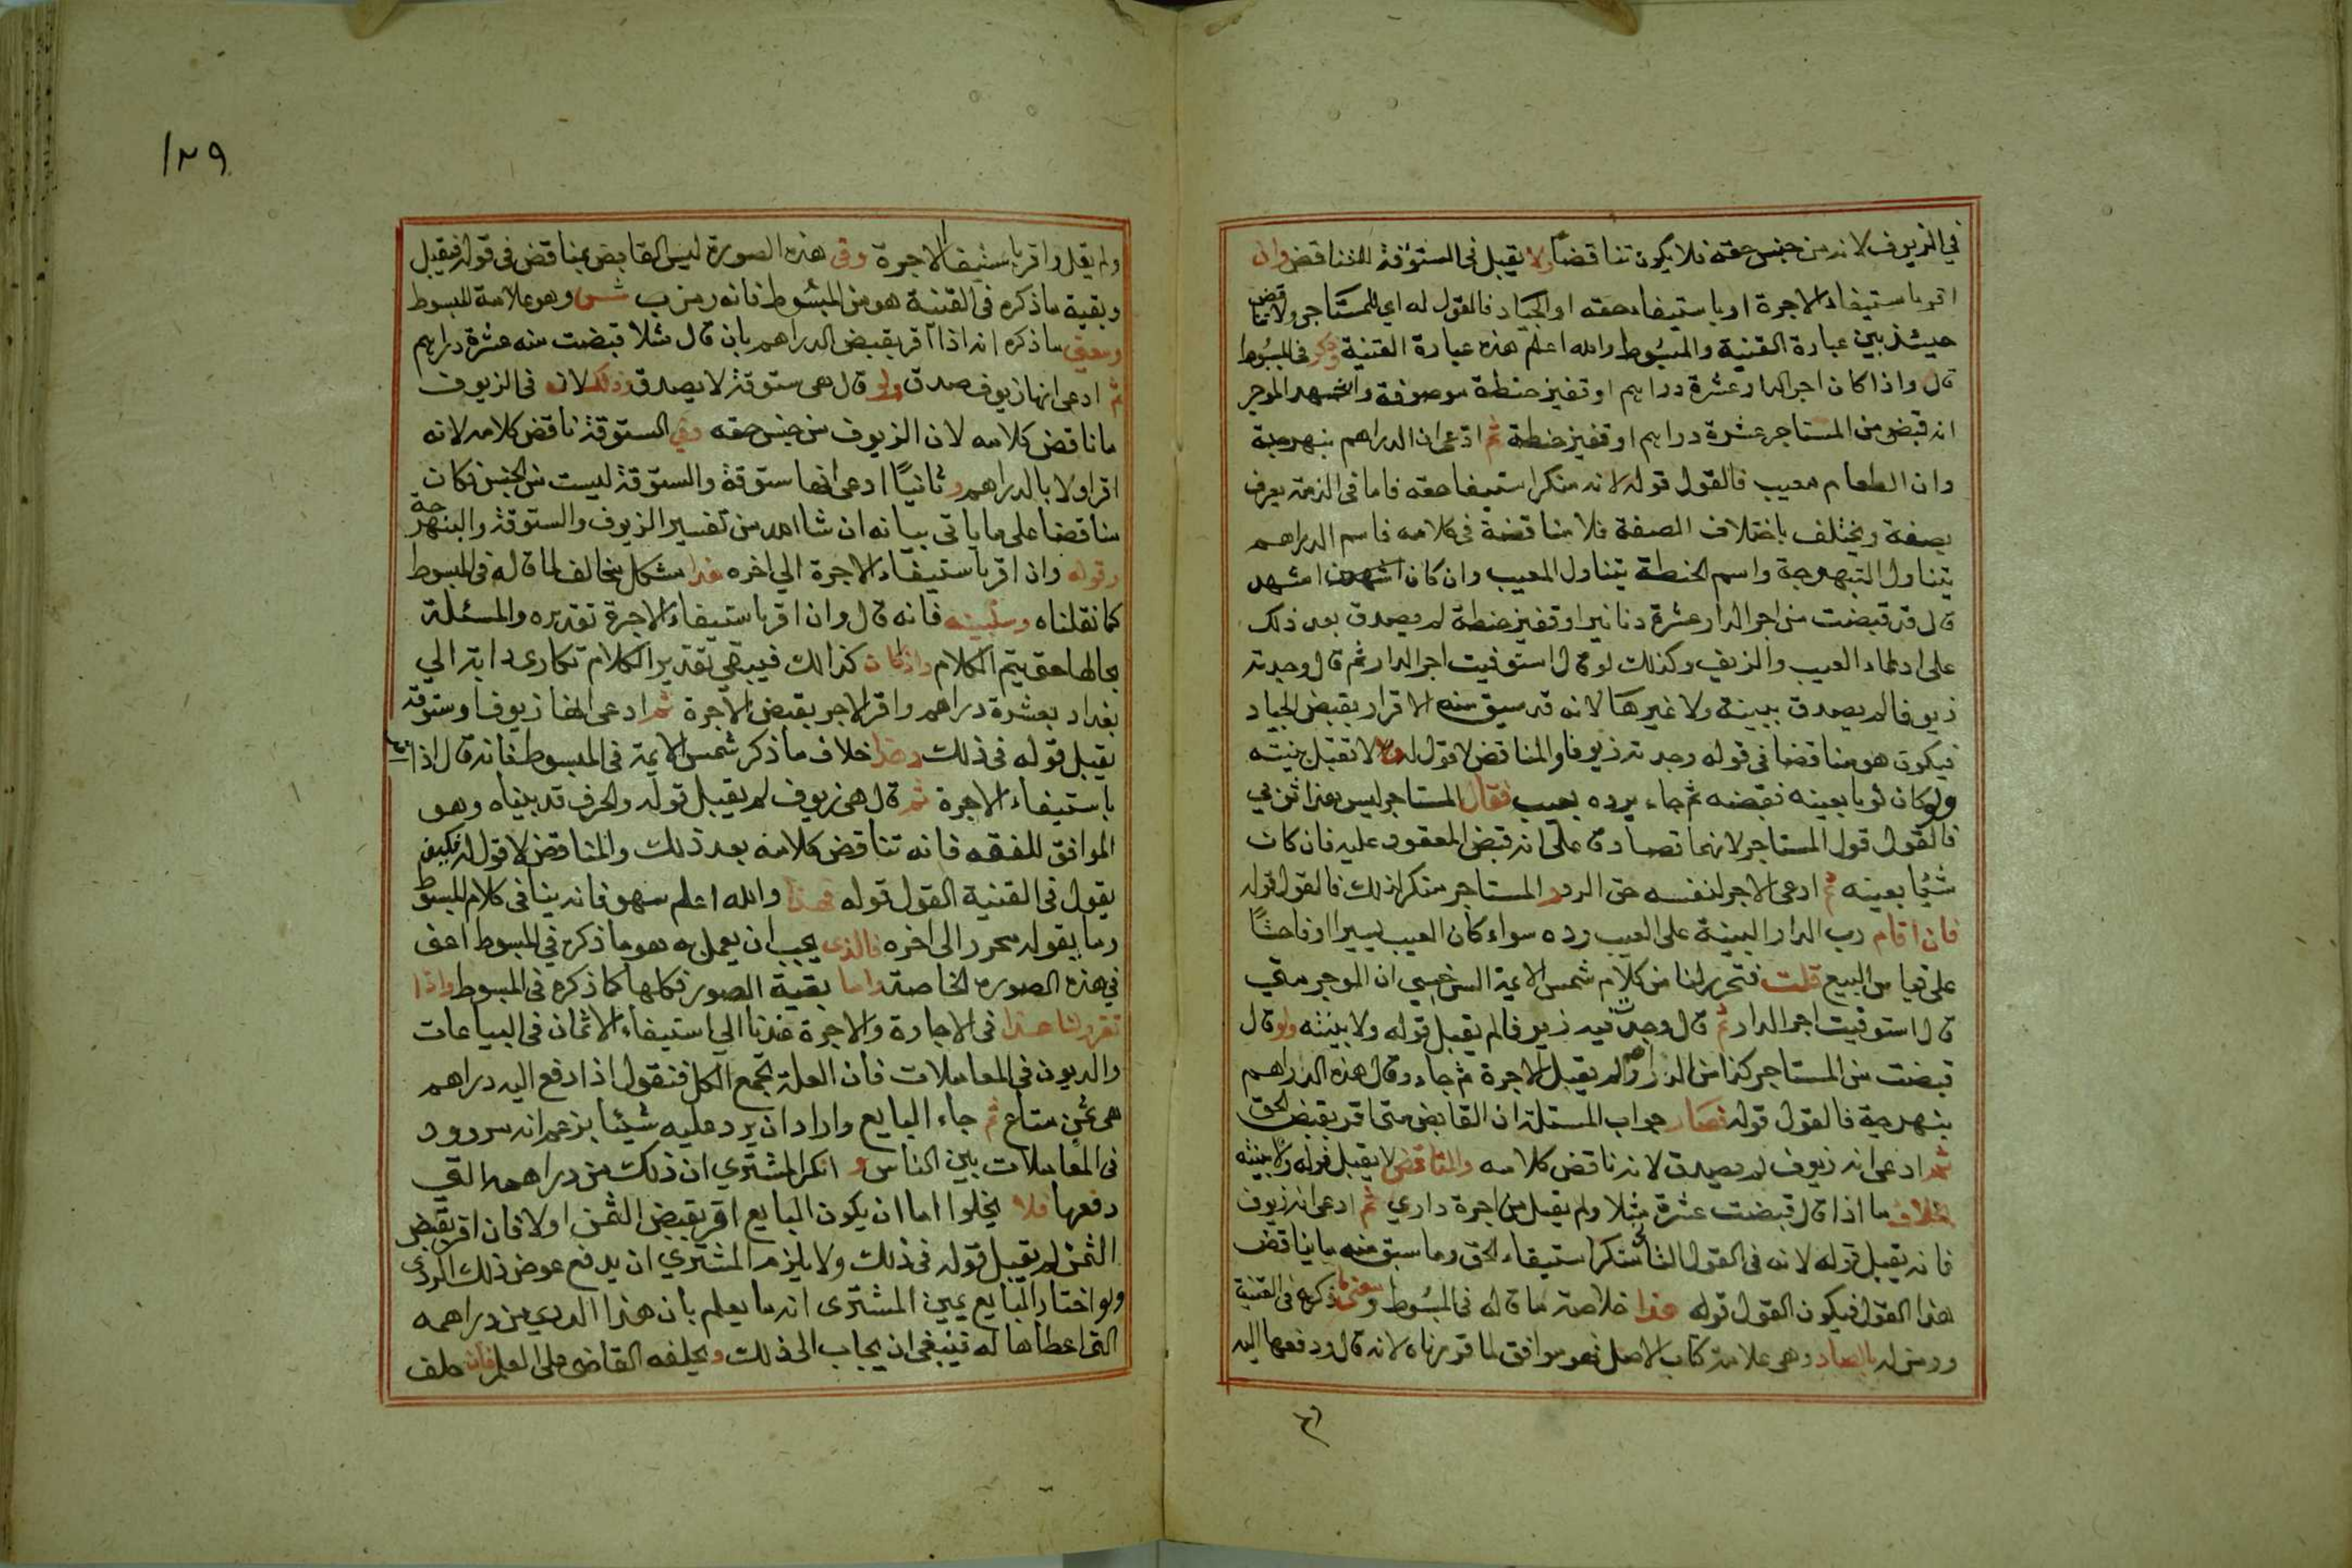 في الزيوف لانه من جنس حقه فلا يكون تناقضا ولا يقبل في الستوقة للتناقض وان
اقر باستيفاء الاجرة او باستيفاء حقه او الجياد فالقول له اي للمستاجر ولا تناقض
حينئذ بين عبارة القنية والمبسوط والله اعلم هذه عبارة القنية وذكر في المبسوط
قال واذا كان اجر الدار عشرة دراهم او قفيز حنطة موصوفة واشهد الموجر
انه قبض من المستاجر عشرة دراهم او قفيز حنطة ثم ادعى ان الدراهم بنهرجة
وان الطعام معيب فالقول قوله لانه منكر استيفا حقه فاما في الذمة يعرف
بصفة ويختلف باختلاف الصفة فلا مناقضة في كلامه فاسم الدراهم
يتناول النبهرجة واسم الحنطة يتناول المعيب وان كان حين اشهد
قال قد قبضت من اجر الدار عشرة دنانير او قفيز حنطة لم يصدق بعد ذلك
على ادعاء العيب والزيف وكذلك لو قال استوفيت اجر الدار ثم قال وجدته
زيوفا لم يصدق ببينة ولا غيرها لانه قد سبق منه الاقرار بقبض الجياد
فيكون هو مناقضا في قوله وجدته زيوفا والمناقض لا قول له ولا تقبل بينته
ولو كان ثوبا بعينه فقبضه ثم جاء يرده بعيب فقال المستاجر ليس هذا ثوبي
فالقول قول المستاجر لانهما تصادقا على انه قبض المعقود عليه فان كان
شيئا بعينه ثم ادعى الاجر لنفسه حق الرد والمستاجر منكر لذلك فالقول قوله
فان اقام رب الدار البينة على العيب رده سواء كان العيب يسيرا او فاحشا
على قياس البيع قلت فتحرر لنا من كلام شمس الايمة السرخسي ان الموجر متى
قال استوفيت اجر الدار ثم قال وجدت فيه زيوفا لم يقبل قوله ولا بينته ولو قال
قبضت من المستاجر كذا من الدراهم ولم يقبل الاجرة ثم جاء وقال هذه الدراهم
بنهرجة فالقول قوله فصار جواب المسئلة ان القابض متى اقر بقبض الحق
ثم ادعى انه زيوف لم يصدق لانه ناقض كلامه والمناقض لا يقبل قوله ولا بينته
بخلاف ما اذا قال قبضت عشرة مثلا ولم يقبل من اجرة داري ثم ادعى انه زيوف
فانه يقبل قوله لانه في القول الثاني منكر استيفاء الحق وما سبق منه ما يناقض
هذا القول فيكون القول قوله هذا خلاصة ما قاله في المبسوط ومعنى ما ذكره في القنية
ورمز له بالصاد وهي علامة كتاب الاصل فهو موافق لما قررناه لانه قال ودفعها اليه
١٢٩
ولم يقل واقر باستيفاء الاجرة وفي هذه الصورة ليس القابض بمناقض في قوله فيقبل
وبقية ما ذكره في القنية هو من المبسوط فانه رمز ب شس وهو علامة للمبسوط
ومعنى ما ذكره انه اذا اقر بقبض الدراهم بان قال مثلا قبضت منه عشرة دراهم
ثم ادعى انها زيوف صدق ولو قال هي ستوقة لا يصدق وذلك لانه في الزيوف
ما ناقض كلامه لان الزيوف من جنس حقه وفي الستوقة ناقض كلامه لانه
اقر اولا بالدراهم وثانيا ادعى انها ستوقة والستوقة ليست من الجنس فكان
مناقضا على ما ياتي بيانه ان شا الله من تفسير الزيوف والستوقة والبنهرجة
وقوله واذا اقر باستيفاء الاجرة الي اخره هذا مشكل يخالف لما قاله في المبسوط
كما نقلناه وسنبينه فانه قال وان اقر باستيفاء الاجرة تقديره والمسئلة
بحالها حتى يتم الكلام واذا كان كذالك فيبقي تقدير الكلام تكارى دابة الي
بغداد بعشرة دراهم واقر الاجر بقبض الاجرة ثم ادعى انها زيوف او ستوقة
يقبل قوله في ذلك وهذا خلاف ما ذكر شمس الايمة في المبسوط فانه قال اذا اقر
باستيفاء الاجرة ثم قال هي زيوف لم يقبل قوله والحرف قد بيناه وهو
الموافق للفقه فانه تناقض كلامه بعد ذلك والمناقض لا قول له فكيف
يقول في القنية القول قوله فهذا والله اعلم سهو فانه ينافي كلام المبسوط
وما يقوله محرر الى اخره فالذي يجب ان يعمل به هو ما ذكره في المبسوط اعني
في هذه الصورة الخاصة واما بقية الصور فكلها كما ذكره في المبسوط واذا
تقرر لنا هذا في الاجارة والاجرة عدنا الي استيفاء الاثمان في البياعات
والديون في المعاملات فان العلة تجمع الكل فنقول اذا دفع اليه دراهم
هي ثمن متاع ثم جاء البايع واراد ان يرد عليه شيئا بزعم انه مردود
في المعاملات بين الناس و انكر المشتري ان ذلك من دراهمه التي
دفعها فلا يخلوا اما ان يكون البايع اقر بقبض الثمن اولا فان اقر بقبض
الثمن لم يقبل قوله في ذلك ولا يلزم المشتري ان يدفع عوض ذلك الردي
ولو اختار البايع يمين المشترى انه ما يعلم بان هذا الردي من دراهمه
التي اعطاها له فينبغي ان يجاب الى ذلك ويحلفه القاضي على العلم فان حلف